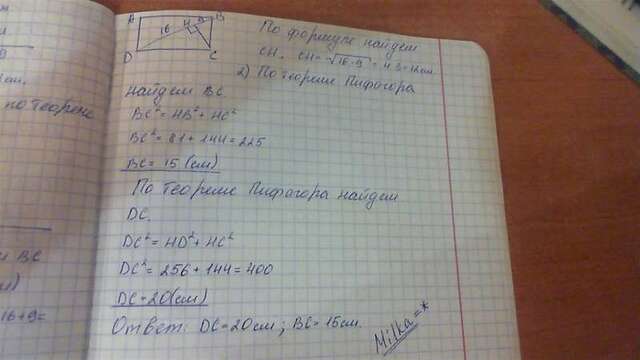 A B
16 H 9
D C
По формуле найдем
CH. CH = √16·9 = 4·3 = 12 см.
2) По теореме Пифагора
найдем BC.
BC² = HB² + HC²
BC² = 81 + 144 = 225
BC = 15 (см)
По теореме Пифагора найдем
DC.
DC² = HD² + HC²
DC² = 256 + 144 = 400
DC = 20 (см)
Ответ: DC = 20 см; BC = 15 см.
Milka =*
см.
по теореме
BC
16+9=